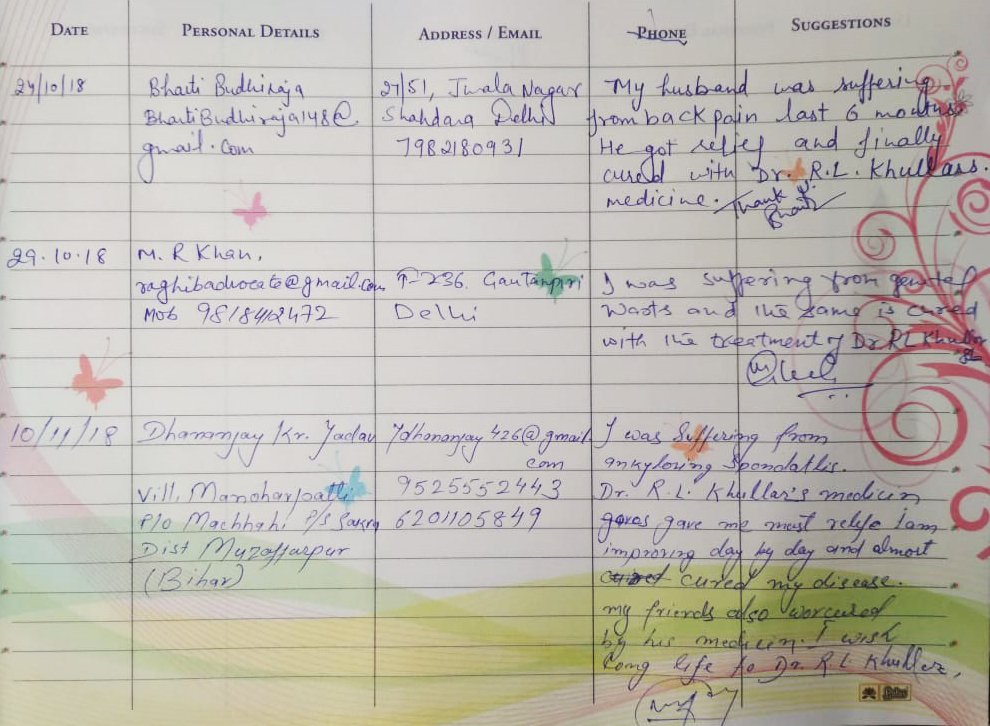 DATE PERSONAL DETAILS ADDRESS / EMAIL PHONE SUGGESTIONS
24/10/18
Bharti Budhiraja
BhartiBudhiraja148@
gmail.com
27/51, Jwala Nagar
Shahdara Delhi
7982180931
My husband was suffering
from back pain last 6 months.
He got relief and finally
cured with Dr. R.L. Khullars.
medicine. Thank u.
Bharti
29.10.18
M. R Khan,
raghibadvocate@gmail.com
Mob 9818412472
236. Gautampuri
Delhi
I was suffering from genital
warts and the same is cured
with the treatment of Dr RL Khullar
10/11/18
Dhananjay Kr. Yadav
Vill, Manoharpatti
P/o Machhahi P/S Sakra
Dist Muzaffarpur
(Bihar)
Ydhananjay426@gmail
com
9525552443
6201105849
I was Suffering from
ankyloving Spondatlis.
Dr. R.L. Khullar's medicin
gave me must relife I am
improving day by day and almost
cured my disease.
my friends also worcured
by his medicin. I wish
Long life to Dr. R L Khuller,